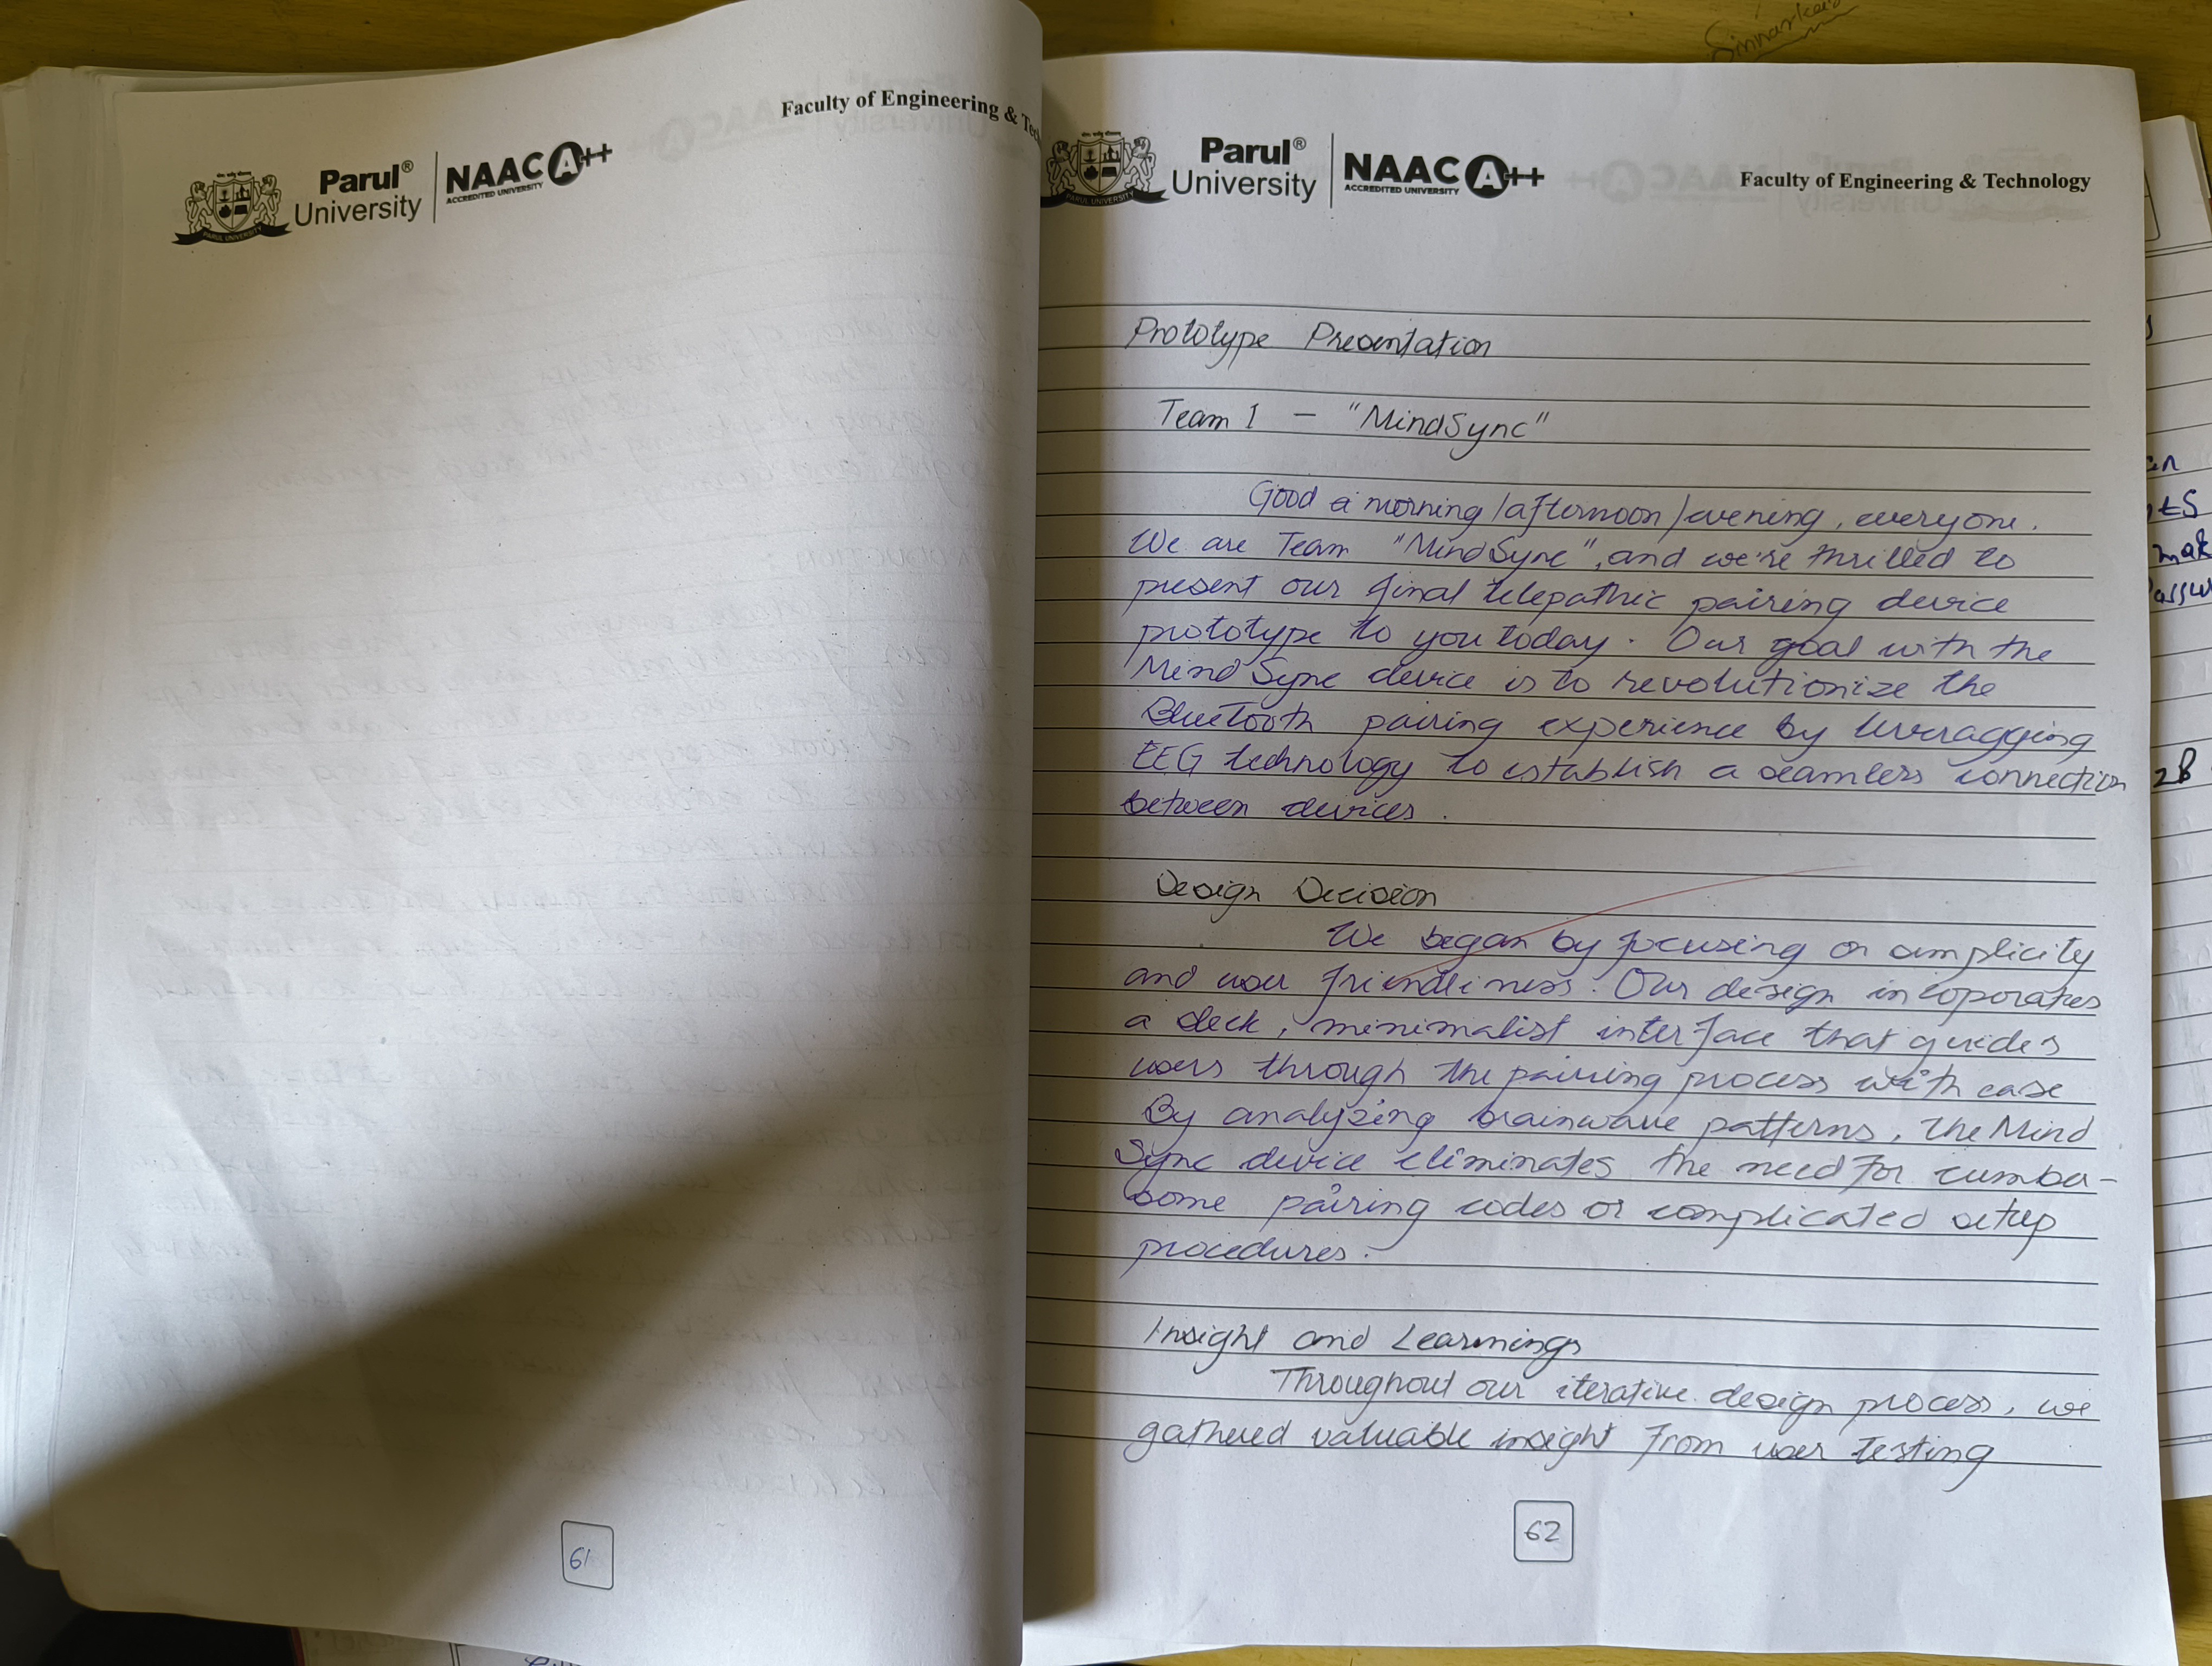 Faculty of Engineering & Tec
Parul® University
NAAC A++
ACCREDITED UNIVERSITY
PARUL UNIVERSITY
61
Parul® University
NAAC A++
ACCREDITED UNIVERSITY
PARUL UNIVERSITY
Faculty of Engineering & Technology
Prototype Presentation
Team 1 - "MindSync"
Good a morning/afternoon/evening, everyone.
We are Team "MindSync", and we're thrilled to
present our final telepathic pairing device
prototype to you today. Our goal with the
MindSync device is to revolutionize the
Bluetooth pairing experience by leveragging
EEG technology to establish a seamless connection
between devices.
Design Decision
We began by focusing on simplicity
and user friendliness. Our design incoporates
a sleek, minimalist interface that guides
users through the pairing process with ease
By analyzing brainwave patterns, the Mind
Sync device eliminates the need for cumber-
some pairing codes or complicated setup
procedures.
Insight and Learnings
Throughout our iterative design process, we
gathered valuable insight from user testing
62